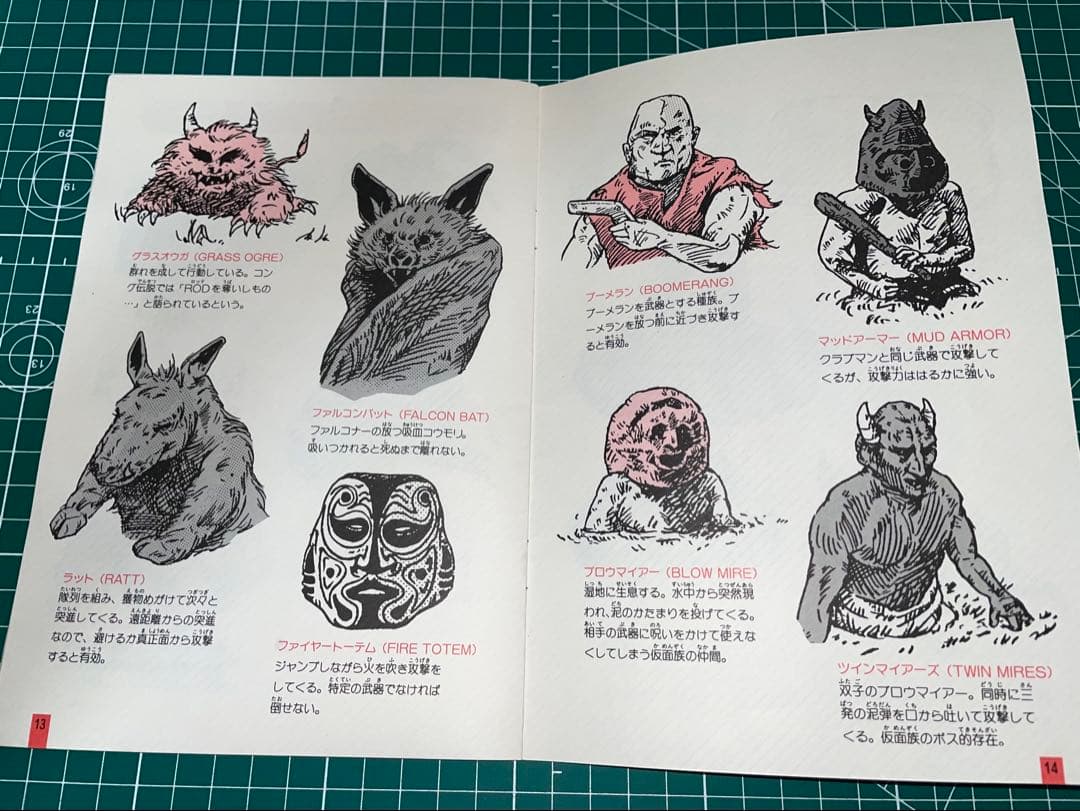 グラスオウガ (GRASS OGRE)
群れを成して行動している。コン
グ伝説では「RODを奪いしもの
…」と語られているという。
ファルコンバット (FALCON BAT)
ファルコナーの放つ吸血コウモリ。
吸いつかれると死ぬまで離れない。
ラット (RATT)
隊列を組み、獲物めがけて次々と
突進してくる。遠距離からの突進
なので、避けるか真正面から攻撃
すると有効。
ファイヤートーテム (FIRE TOTEM)
ジャンプしながら火を吹き攻撃を
してくる。特定の武器でなければ
倒せない。
13
ブーメラン (BOOMERANG)
ブーメランを武器とする種族。ブ
ーメランを放つ前に近づき攻撃す
ると有効。
マッドアーマー (MUD ARMOR)
クラブマンと同じ武器で攻撃して
くるが、攻撃力ははるかに強い。
ブロウマイアー (BLOW MIRE)
湿地に生息する。水中から突然現
われ、泥のかたまりを投げてくる。
相手の武器に呪いをかけて使えな
くしてしまう仮面族の仲間。
ツインマイアーズ (TWIN MIRES)
双子のブロウマイアー。同時に三
発の泥弾を口から吐いて攻撃して
くる。仮面族のボス的存在。
14
29
19
23
13